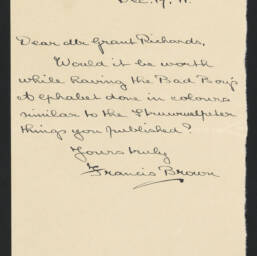 Dec. 19. 11.
Dear Mr Grant Richards,
Would it be worth
while having the Bad Boy's
Alphabet done in colours
similar to the Struwwelpeter
things you published?
Yours truly
Francis Brown